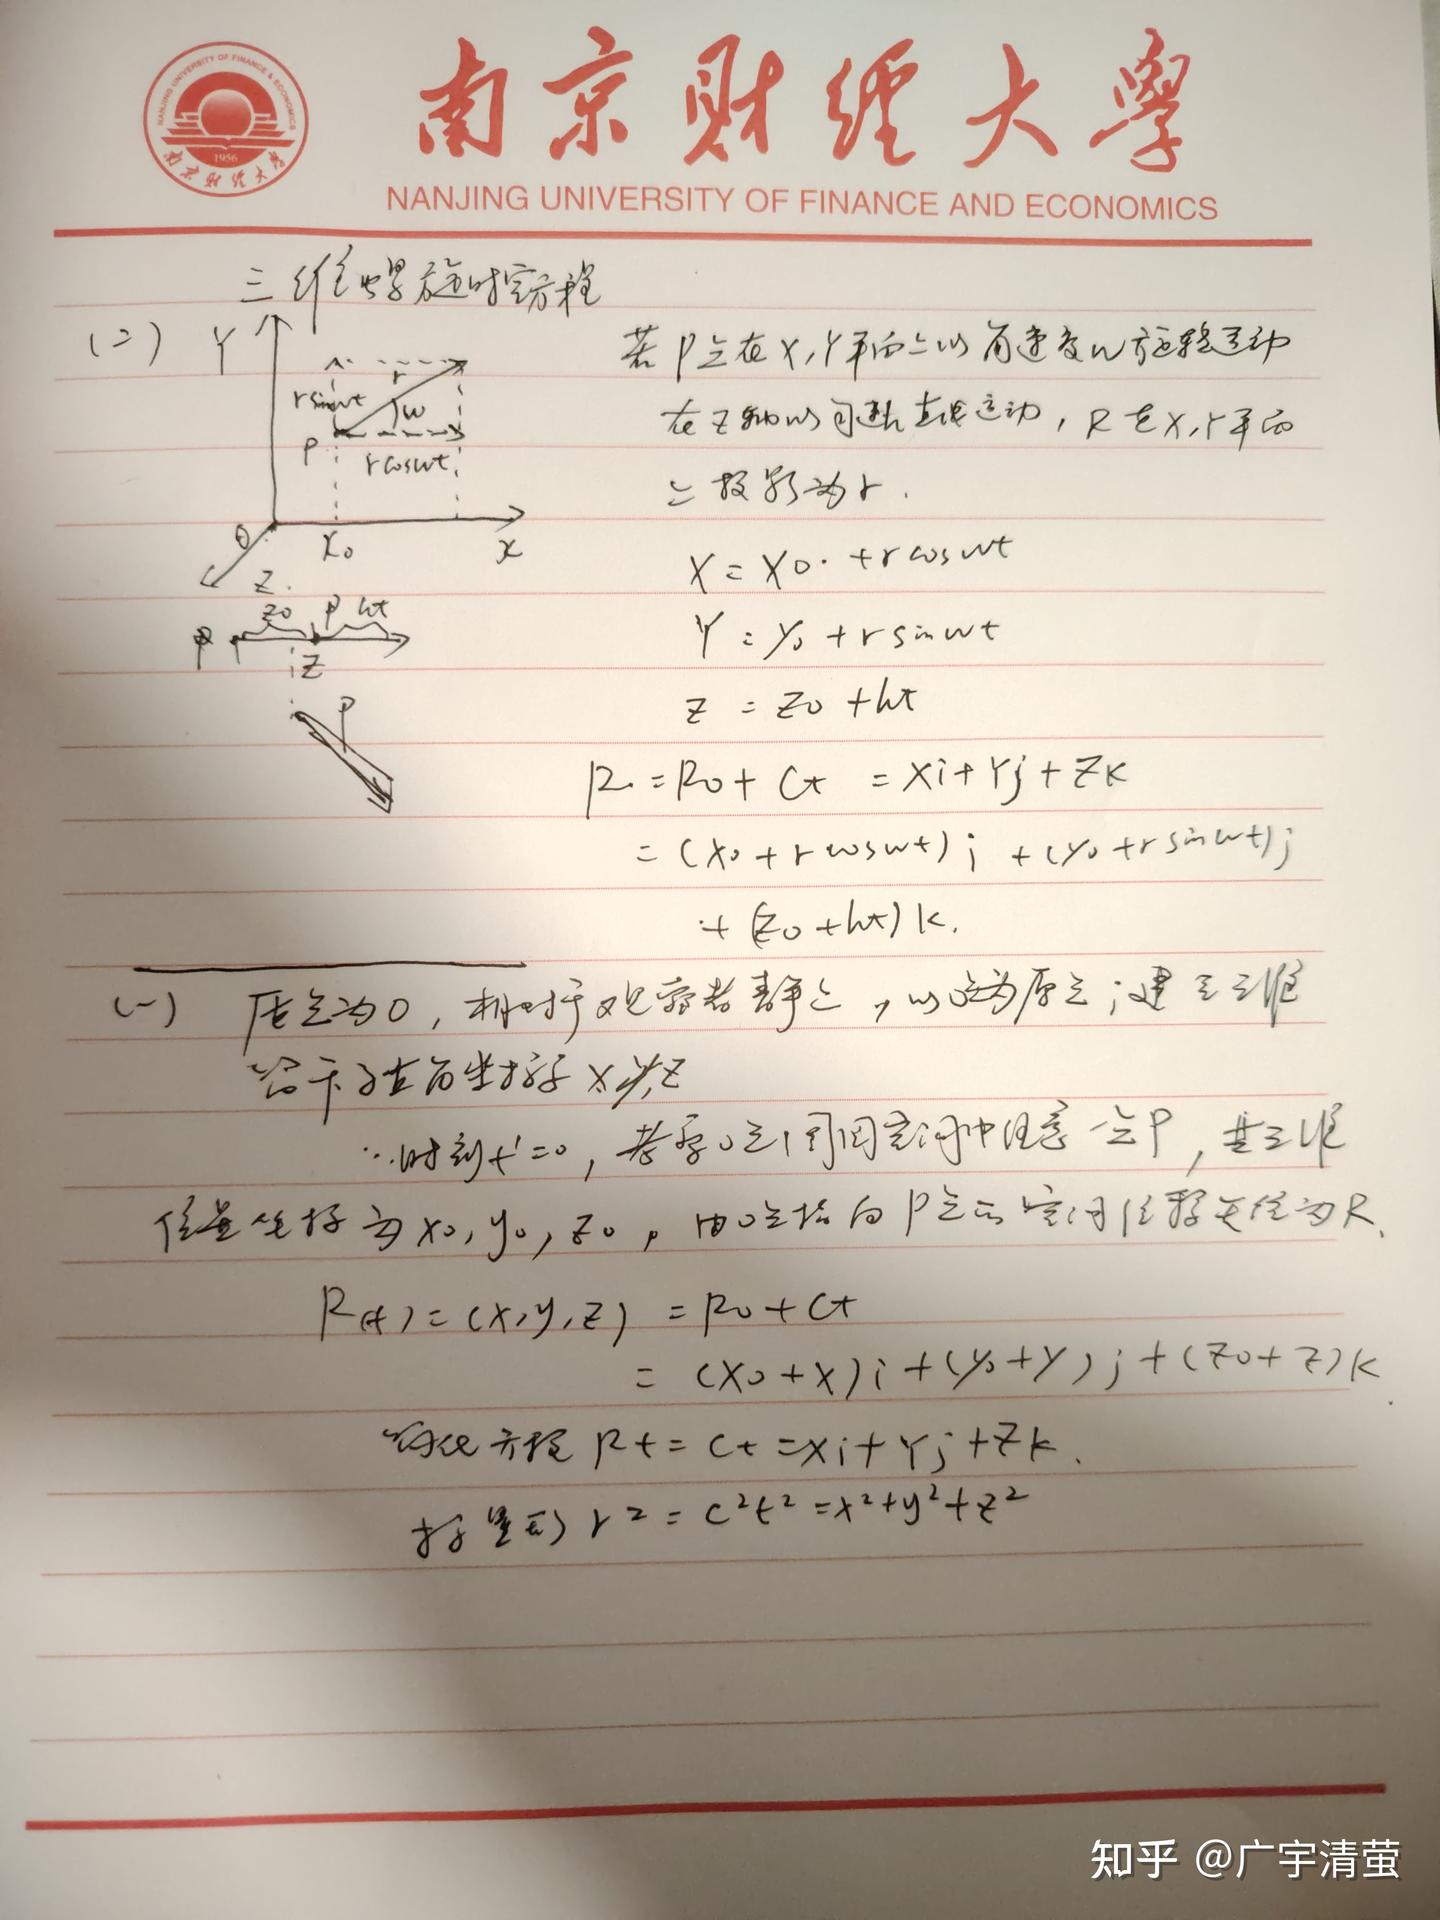 NANJING UNIVERSITY OF FINANCE & ECONOMICS
1956
南京财经大学
南京财经大学
NANJING UNIVERSITY OF FINANCE AND ECONOMICS
三维螺旋时空方程
(二)
Y
r
rsinwt
w
P
rcoswt
O
X0
X
Z
Z0
P
ht
P
Z
P
若P点在X,Y平面上以角速度w旋转运动
在Z轴以匀速h直线运动,R在X,Y平面
上投影为r.
X = X0 + rcoswt
Y = y0 + rsinwt
Z = Z0 + ht
R = R0 + Ct = Xi + Yj + Zk
= (X0 + rcoswt) i + (y0 + rsinwt) j
+ (Z0 + ht) k.
(一) 质点为O,相对于观察者静止,以O点为原点,建立三维
笛卡尔直角坐标系X,Y,Z
时刻t'=0,考察O点周围空间中任意一点P,其三维
位置坐标为x0,y0,z0,由O点指向P点的空间位移矢径为R.
R(t) = (x,y,z) = R0 + Ct
= (X0 + X)i + (y0 + y)j + (Z0 + Z)k
简化方程 Rt = Ct = Xi + Yj + Zk.
标量式 r² = c²t² = x² + y² + z²
知乎 @广宇清萤